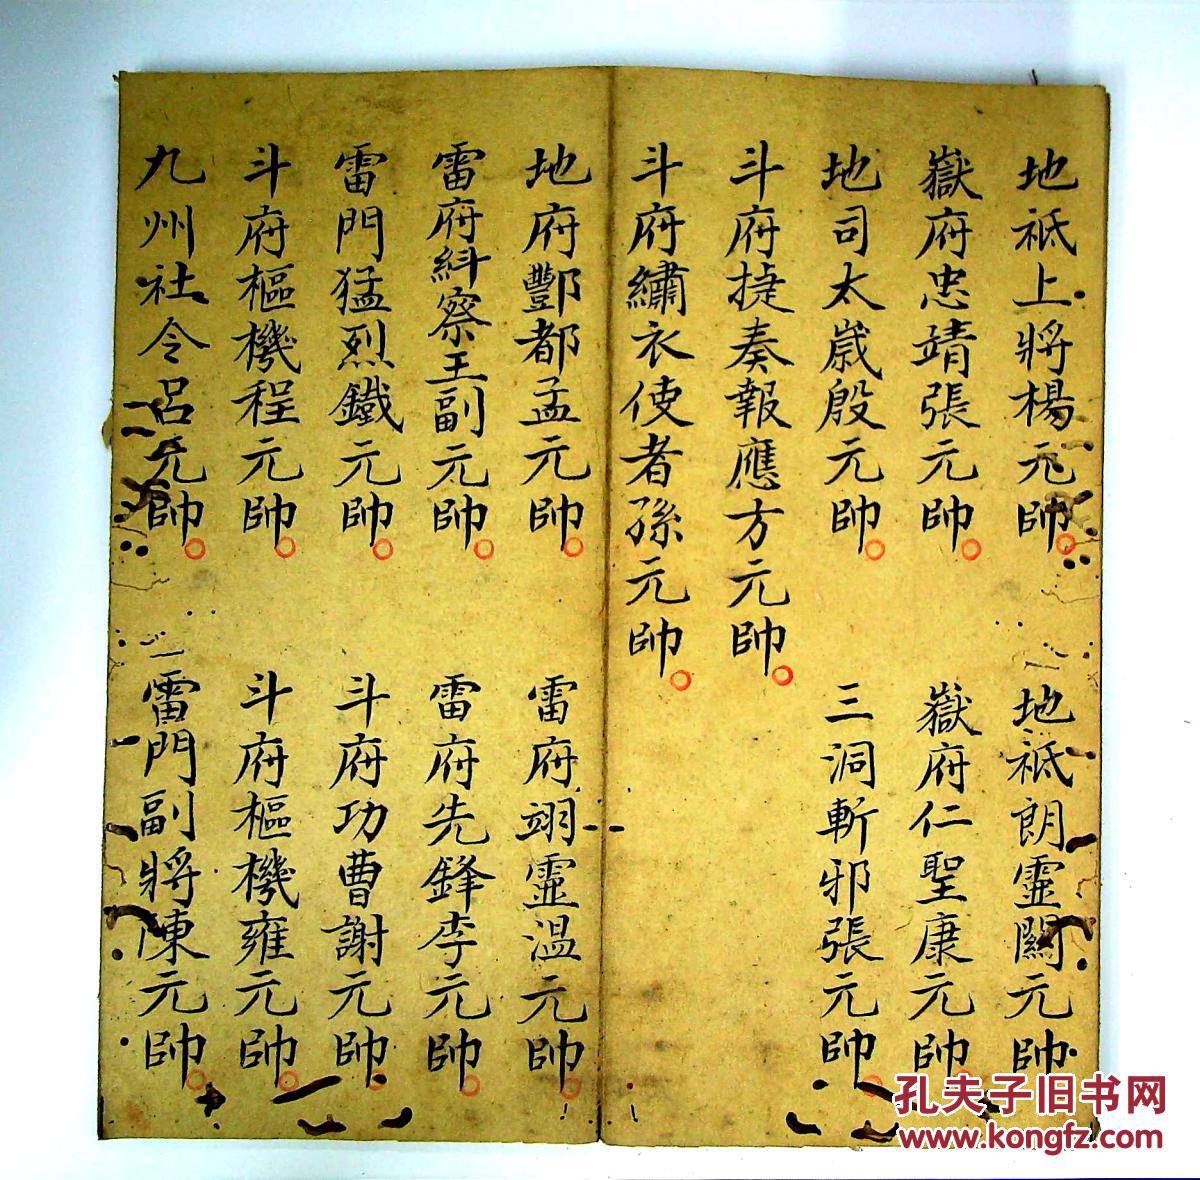 地祇上將楊元帥
地祇朗靈關元帥
嶽府忠靖張元帥
嶽府仁聖康元帥
地司太歲殷元帥
三洞斬邪張元帥
斗府捷奏報應方元帥
斗府繡衣使者孫元帥
地府酆都孟元帥
雷府翊靈温元帥
雷府糾察王副元帥
雷府先鋒李元帥
雷門猛烈鐵元帥
斗府功曹謝元帥
斗府樞機程元帥
斗府樞機雍元帥
九州社令呂元帥
雷門副將陳元帥
孔夫子旧书网
www.kongfz.com